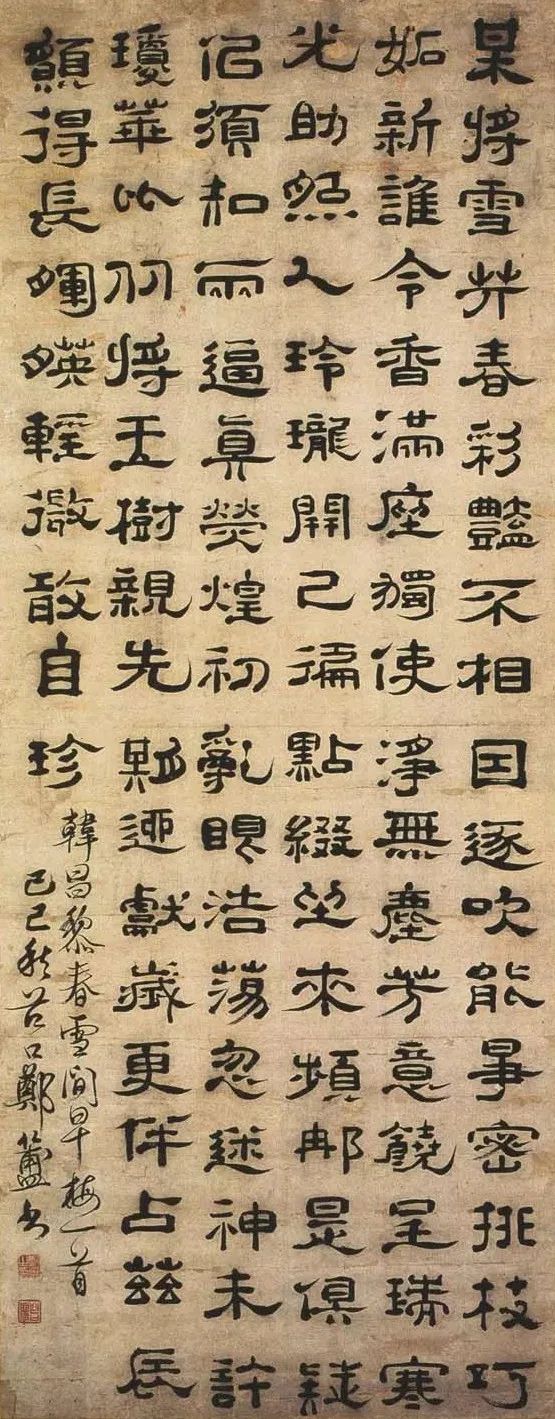 某將雪共春彩豔不相因逐吹能爭密排枝巧
妬新誰令香滿座獨使淨無塵芳意饒呈瑞寒
光助照人玲瓏開已徧點綴坐來頻那是俱疑
佀須知兩逼真熒煌初亂眼浩蕩忽迷神未許
瓊華比从將玉樹親先期迎獻歲更伴占茲辰
顠得長煇暎輕微敢自珍
韓昌黎春雪間早梅一首
己巳秋谷口鄭簠書